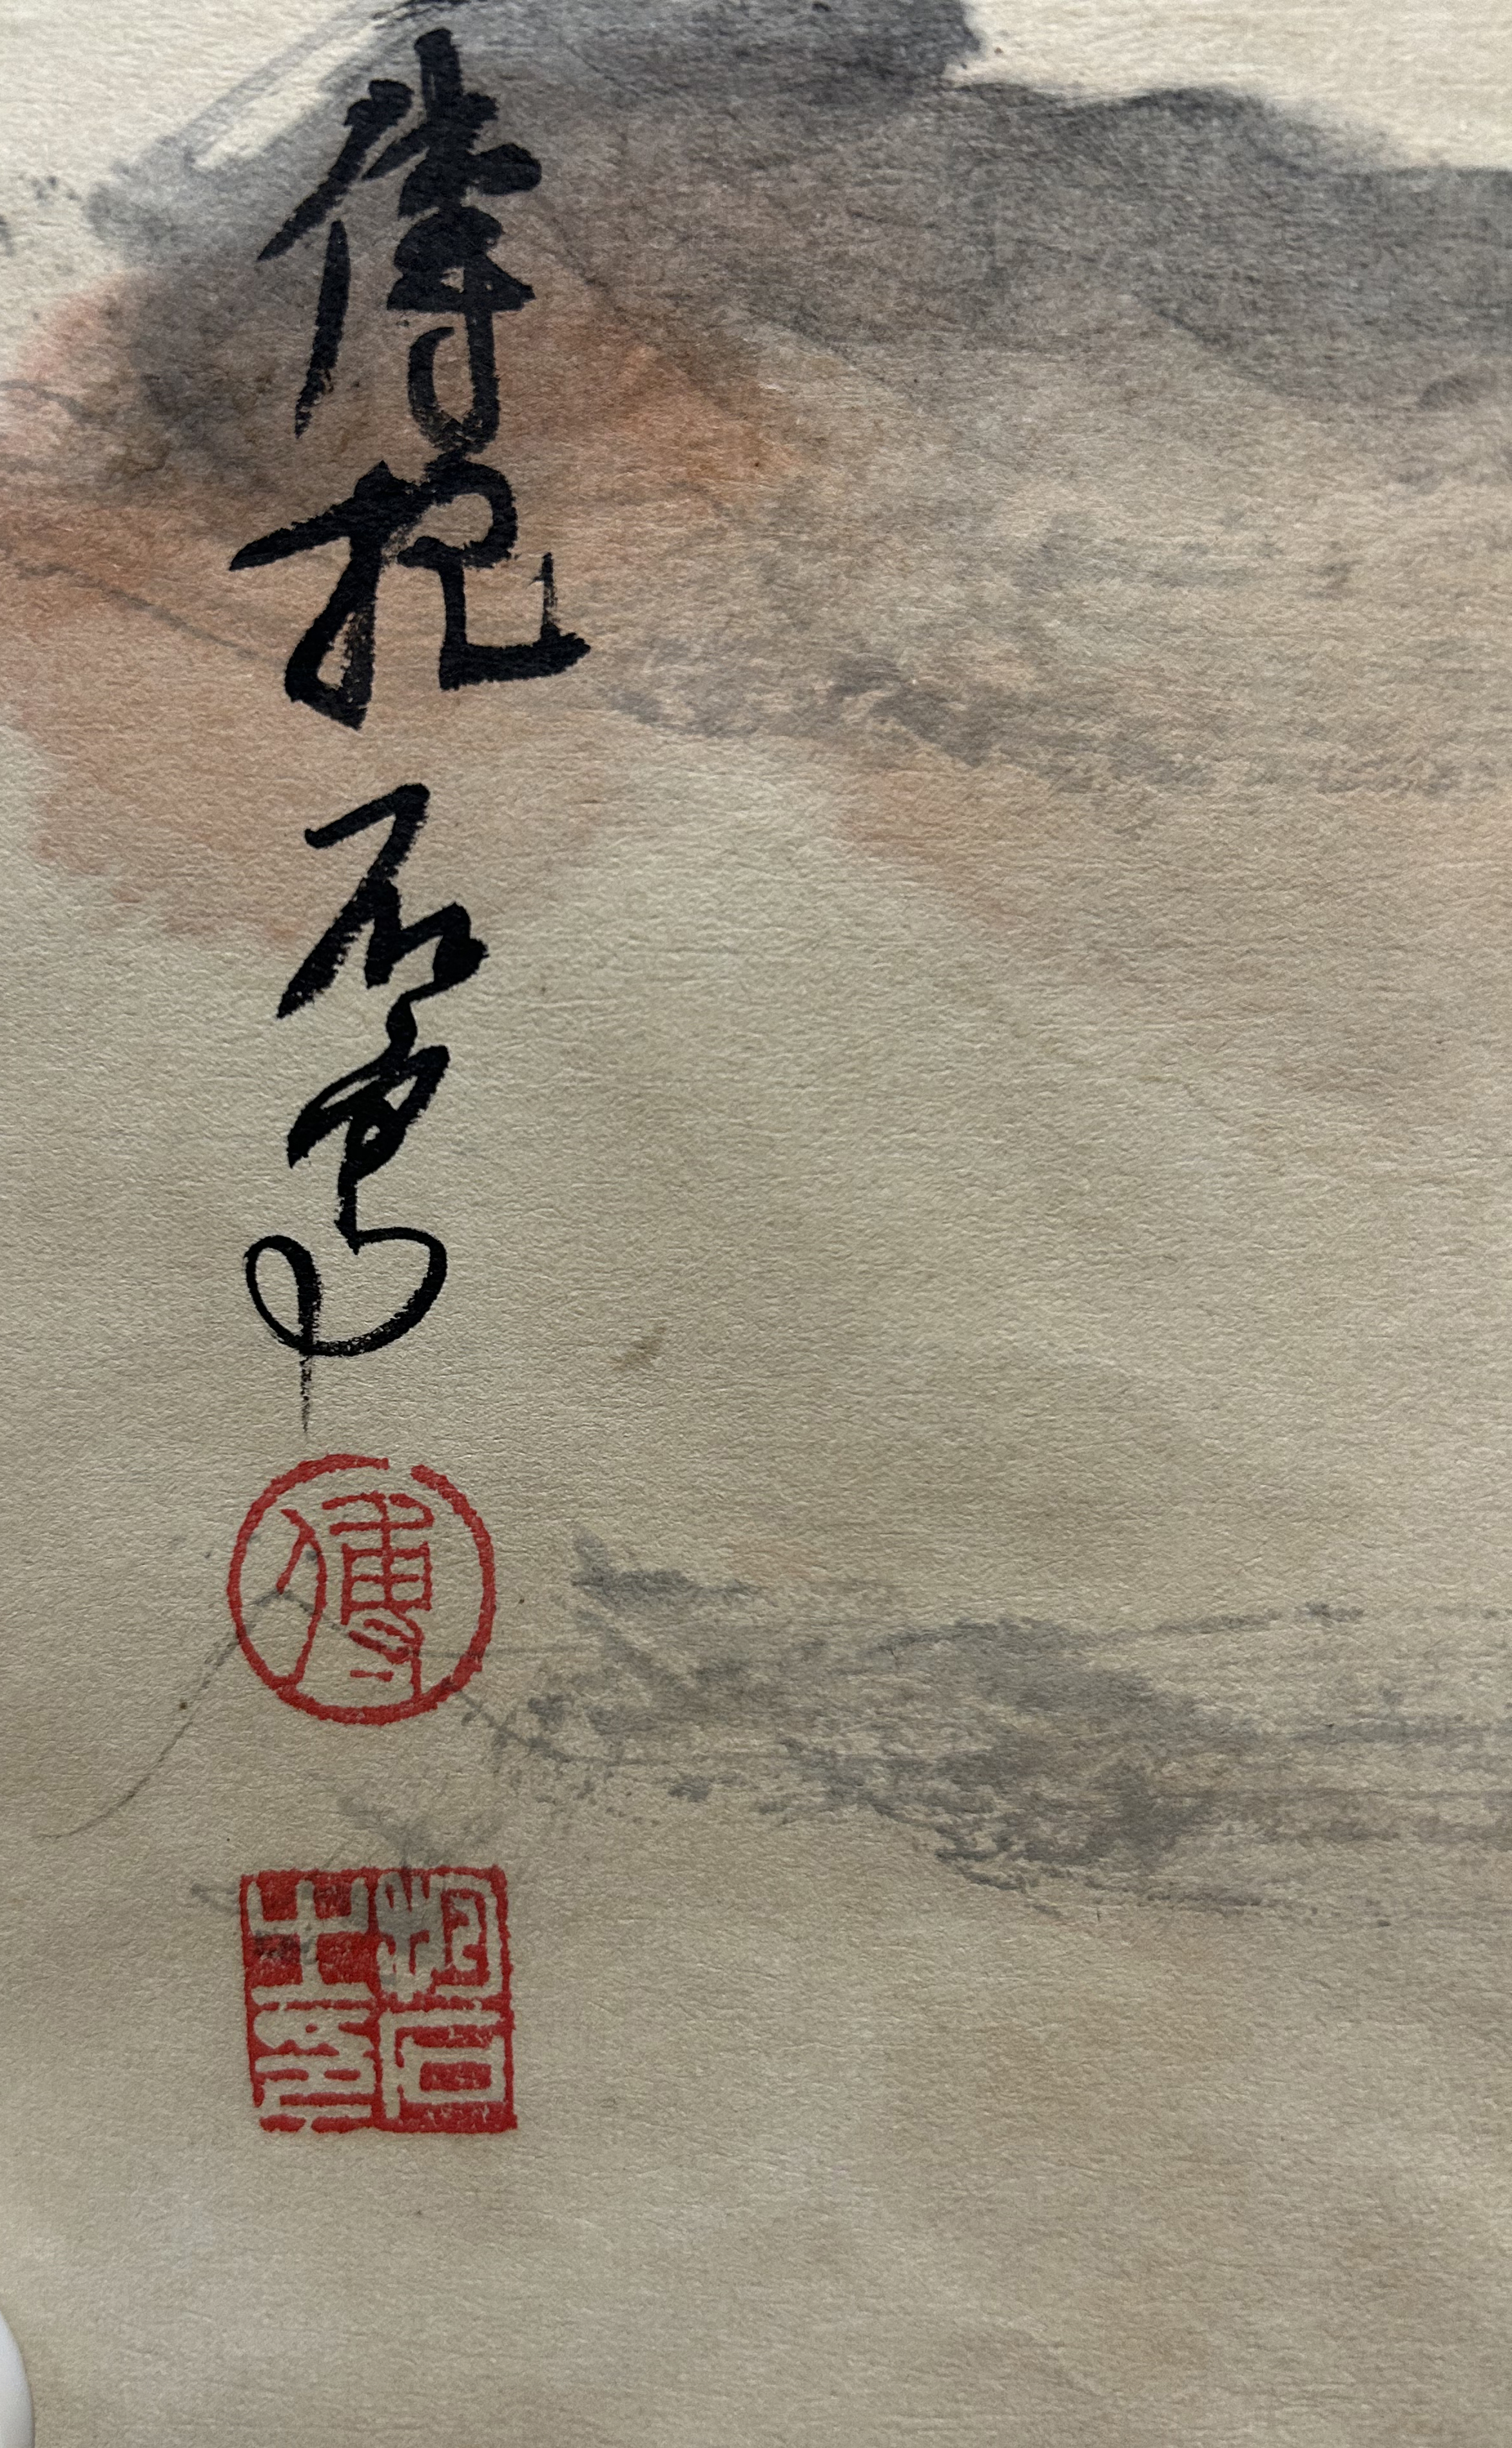 傅抱石寫
傅
抱石
之印